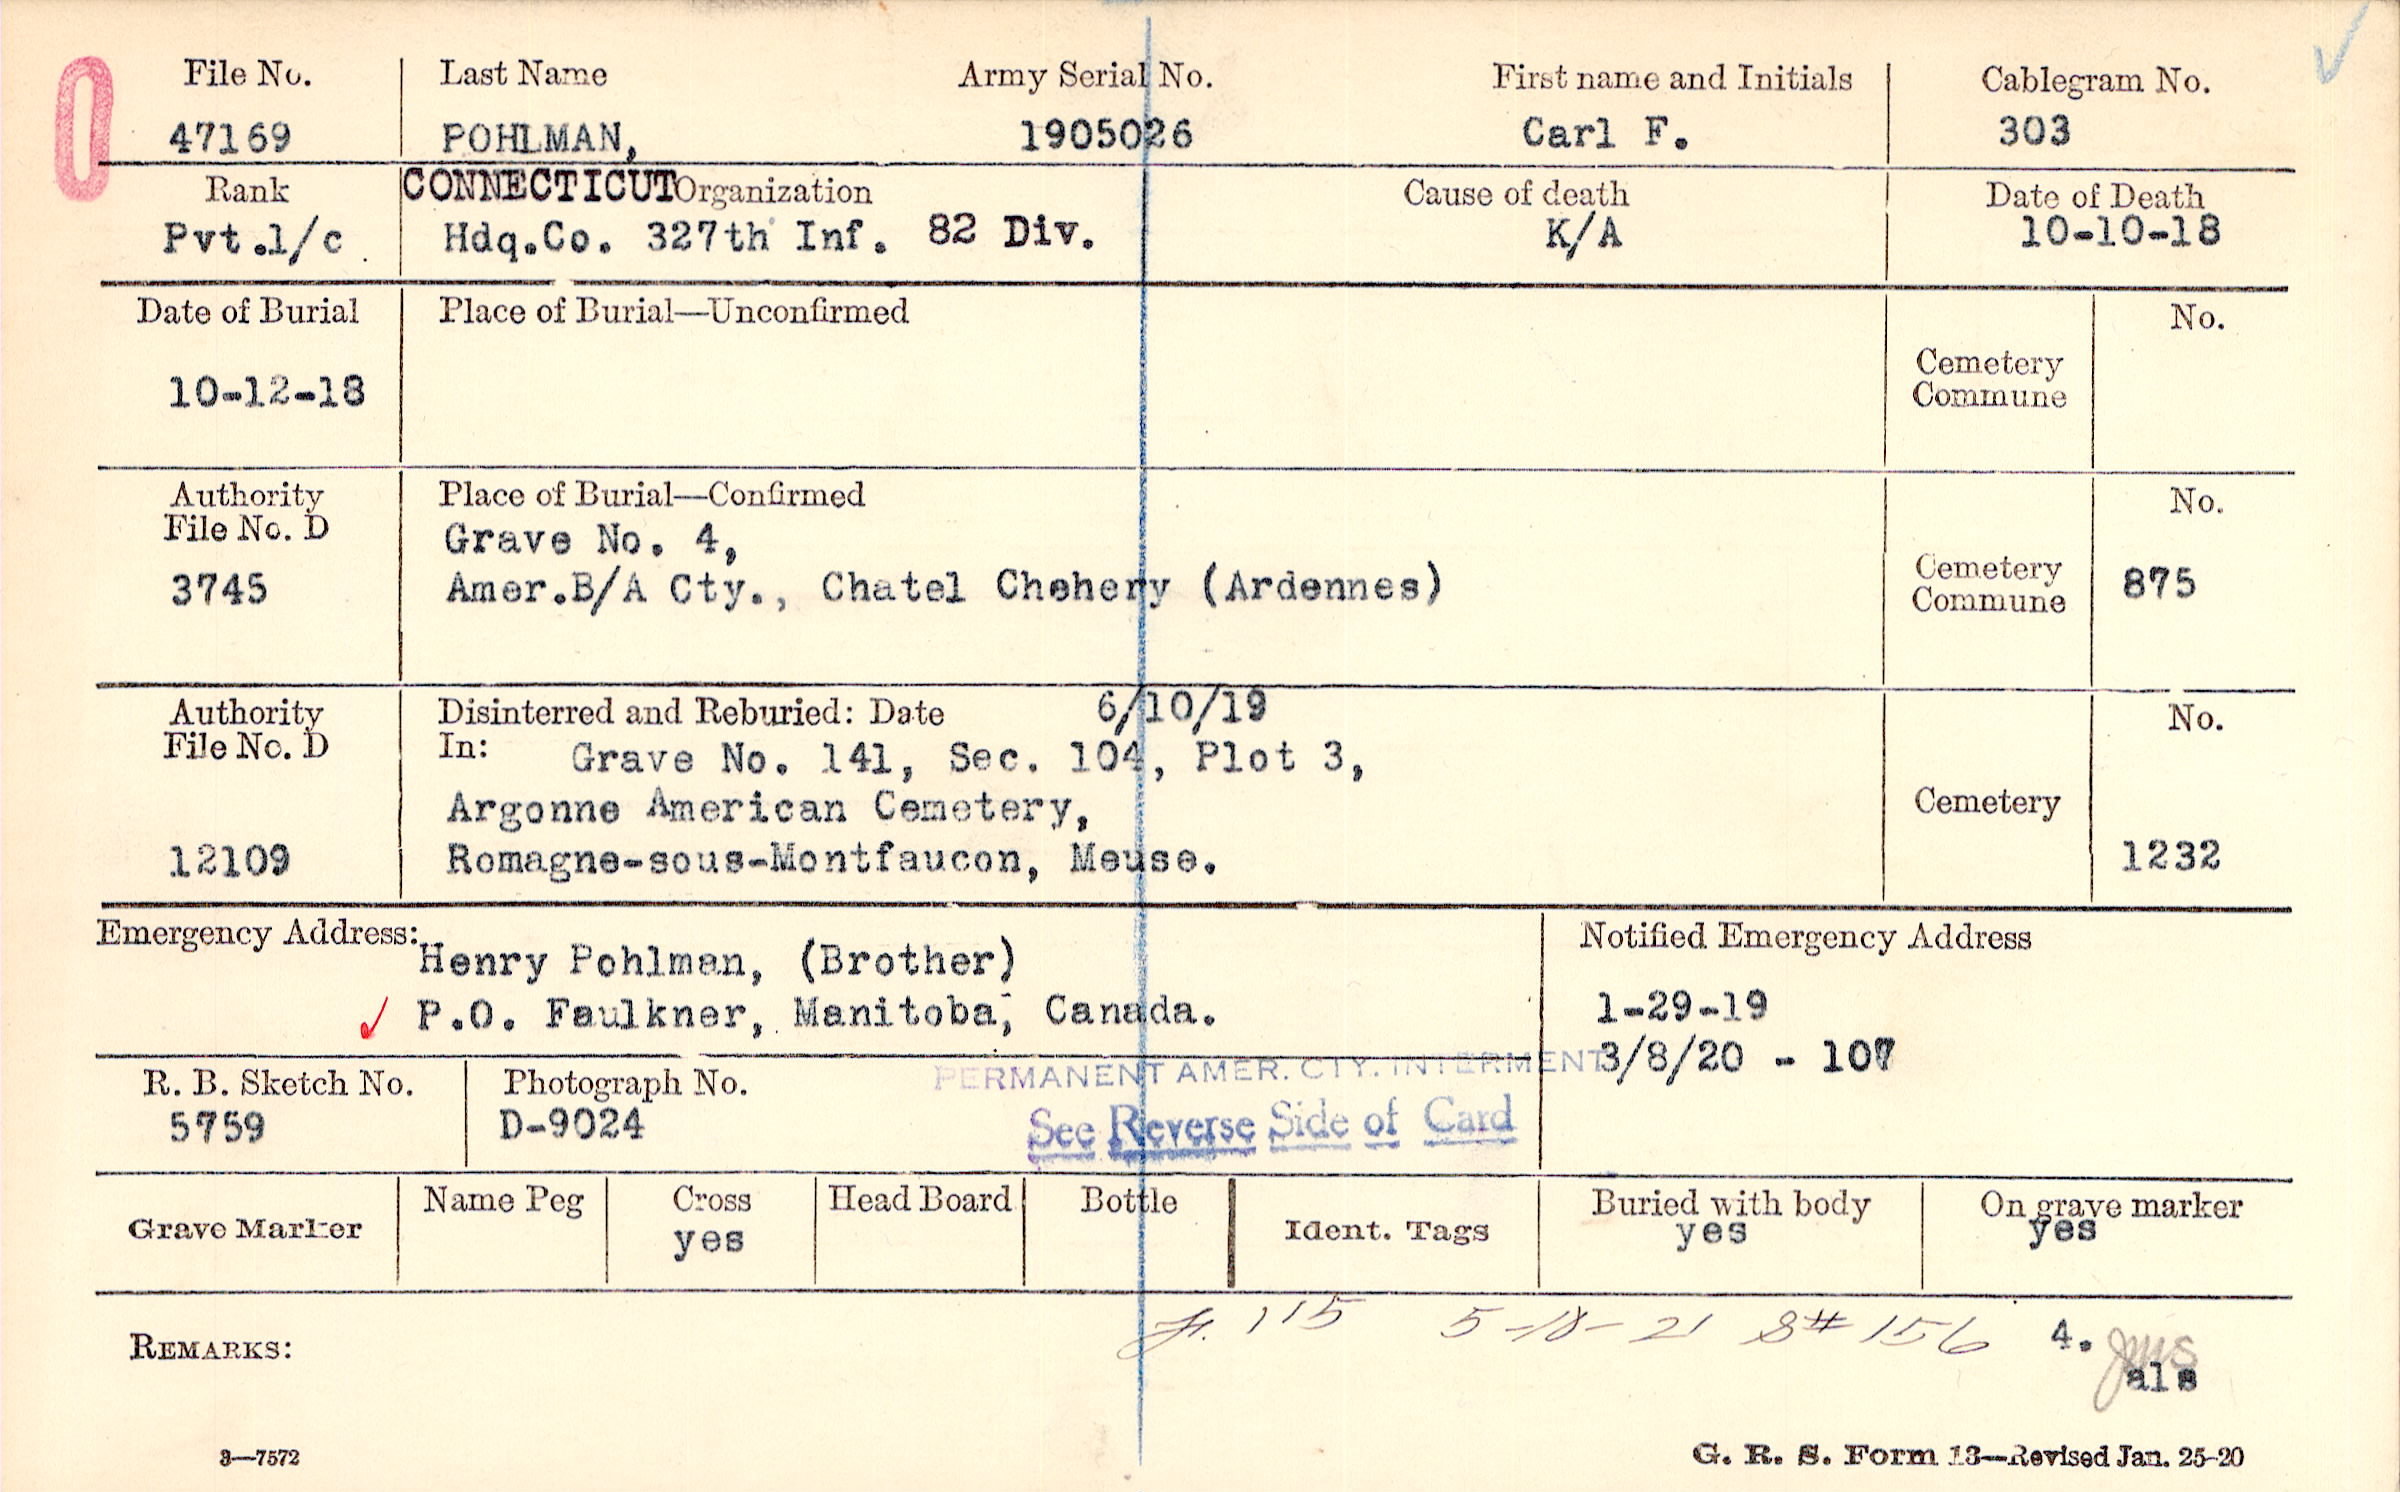 0
File No. Last Name Army Serial No. First name and Initials Cablegram No.
47169 POHLMAN, 1905026 Carl F. 303
Rank CONNECTICUT Organization Cause of death Date of Death
Pvt.1/c Hdq.Co. 327th Inf. 82 Div. K/A 10-10-18
Date of Burial Place of Burial—Unconfirmed No.
Cemetery
Commune
10-12-18
Authority Place of Burial—Confirmed No.
File No. D
Grave No. 4,
3745 Amer.B/A Cty., Chatel Chehery (Ardennes) Cemetery 875
Commune
Authority Disinterred and Reburied: Date 6/10/19 No.
File No. D In: Grave No. 141, Sec. 104, Plot 3,
Argonne American Cemetery, Cemetery
12109 Romagne-sous-Montfaucon, Meuse. 1232
Emergency Address: Notified Emergency Address
Henry Pohlman, (Brother)
P.O. Faulkner, Manitoba, Canada. 1-29-19
PERMANENT AMER. CTY. INTERMENT 3/8/20 - 107
R. B. Sketch No. Photograph No.
5759 D-9024 See Reverse Side of Card
Grave Marker Name Peg Cross Head Board Bottle Ident. Tags Buried with body On grave marker
yes yes yes
115 5-18-21 S# 156 4.
REMARKS: jms
als
3—7572 G. R. S. Form 13—Revised Jan. 25-20